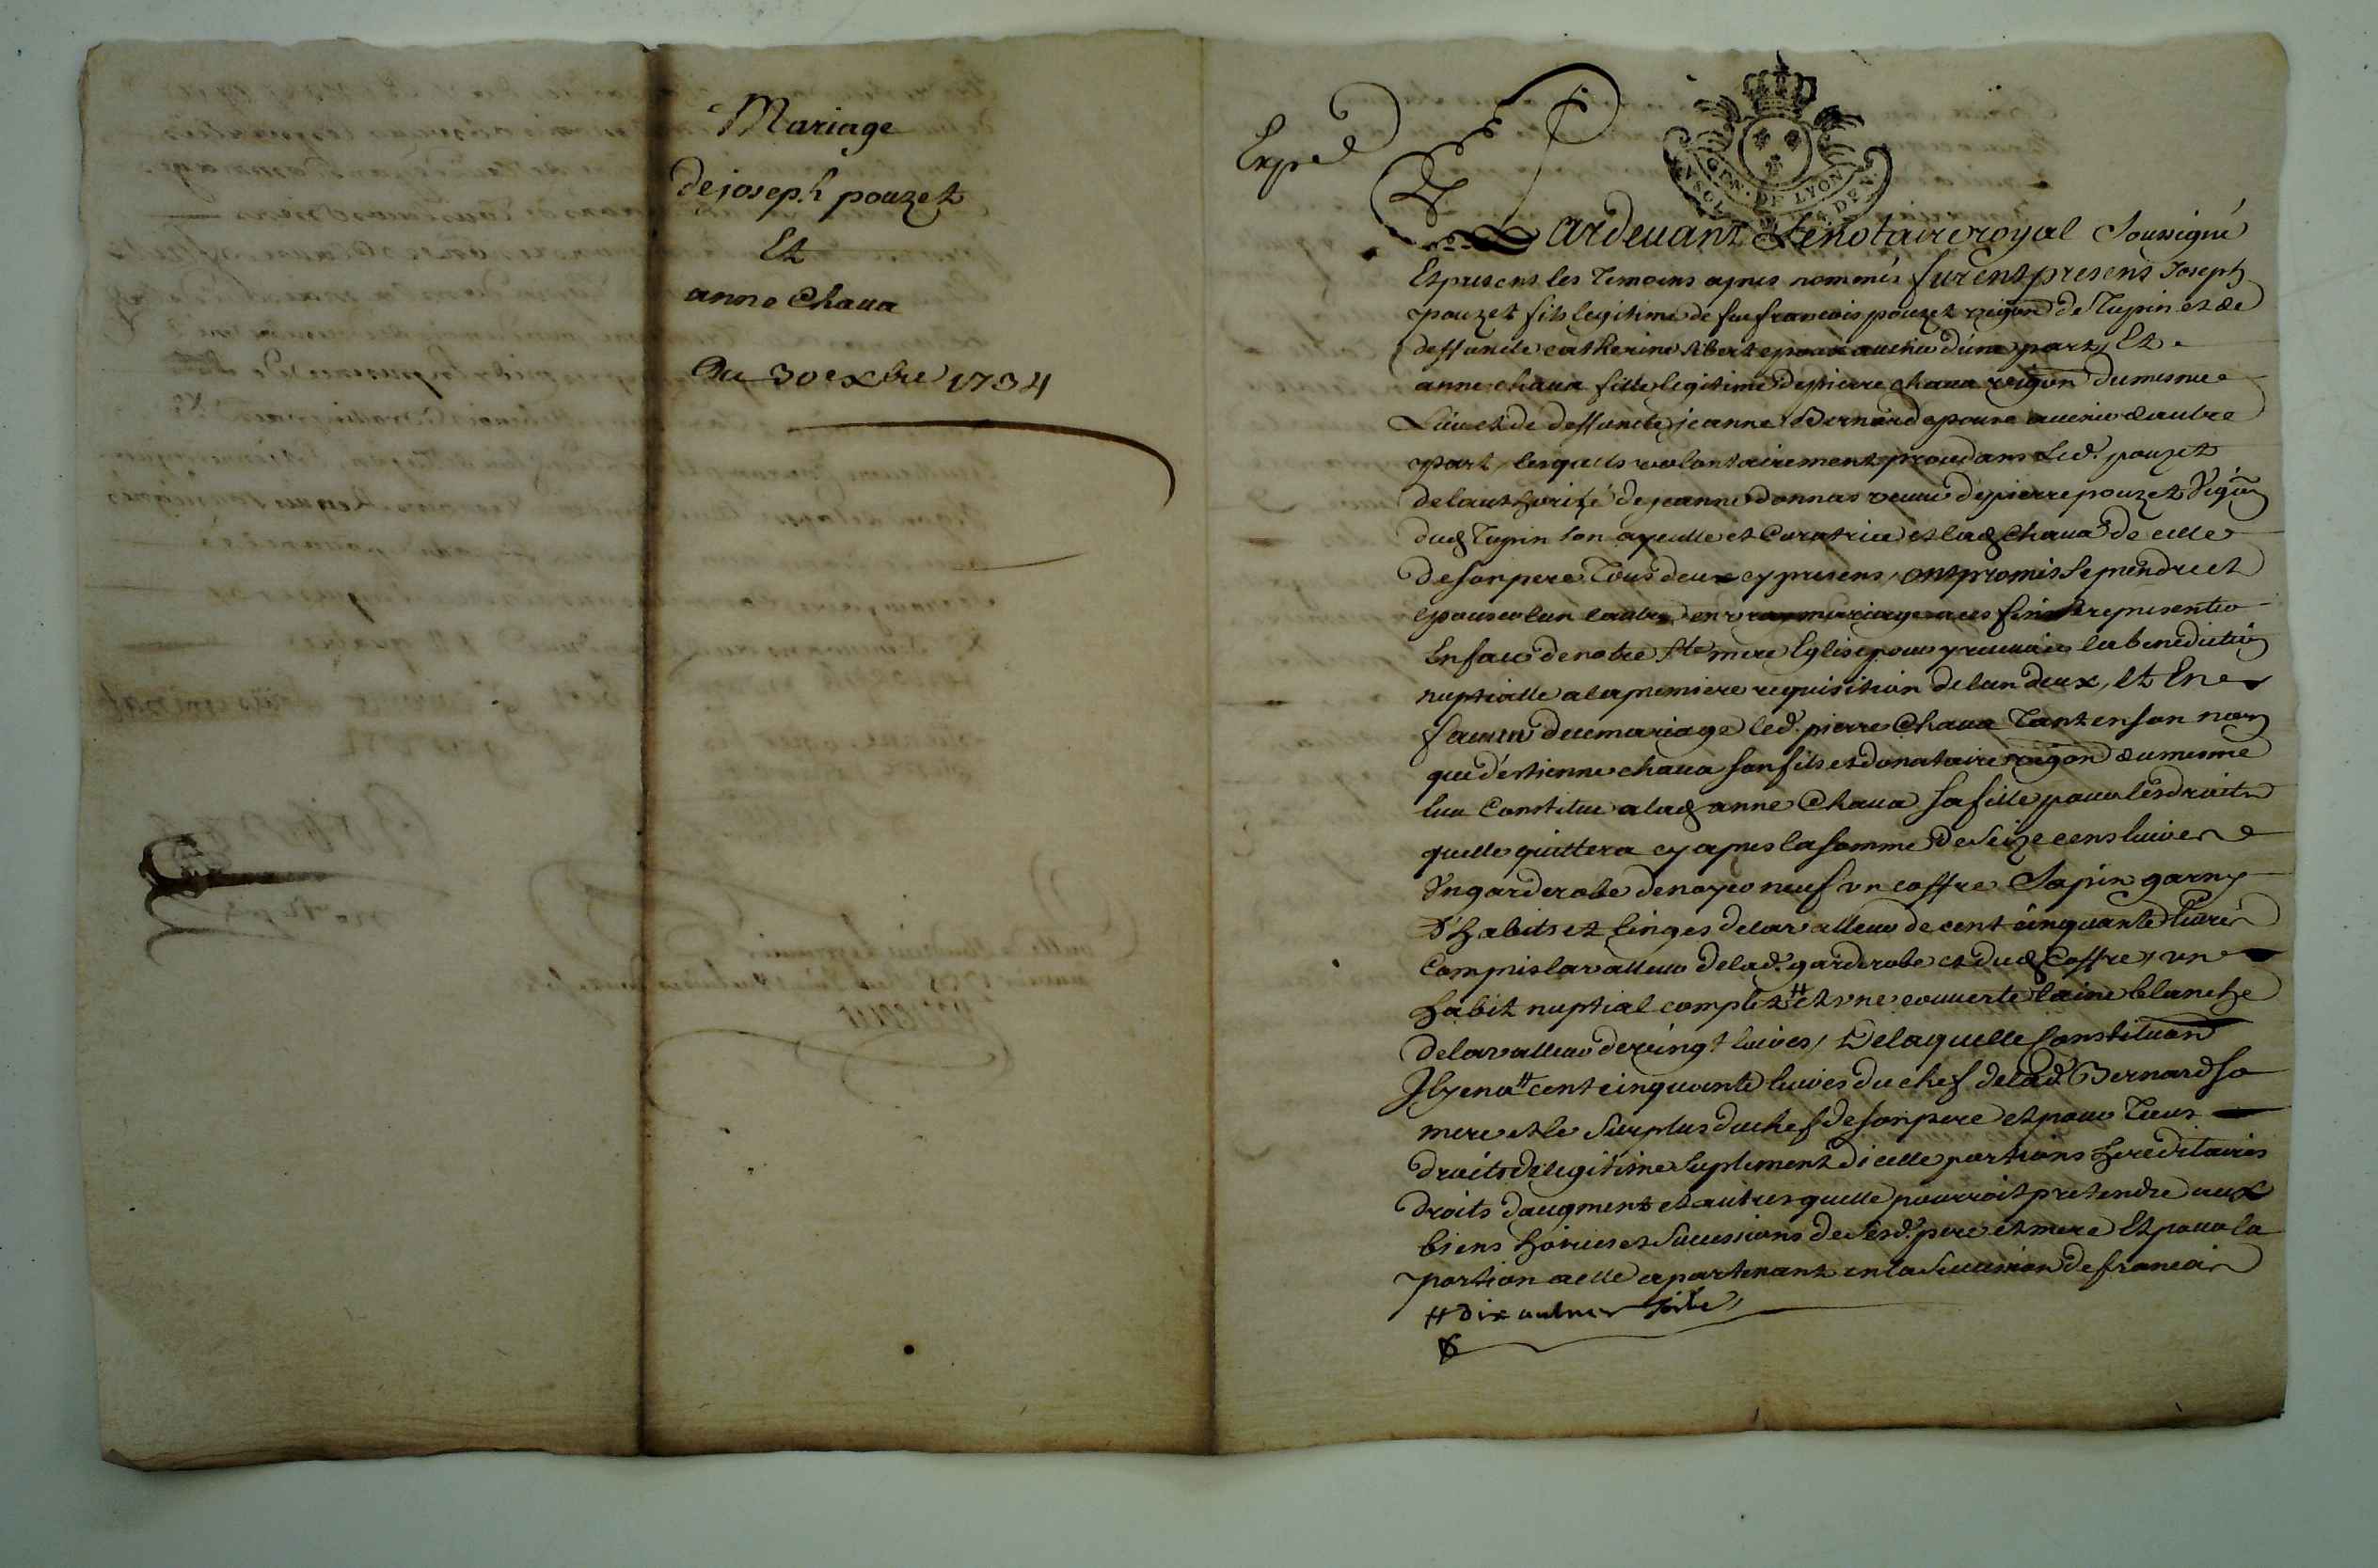 Mariage
de joseph pouzet
Et
anne Chaua
Du 30e xbre 1734
Expeé
GEN. DE LYON
Pardeuant Le notaire royal Soussigné
Et presens les Temoins apres nommés furent present Joseph
pouzet fils legitime de feu francois pouzet vigon de Tupin et de
deffuncte catherine Ribert epoux auenir d'une part, Et
anne chaua fille legitime de pierre chaua vigon du mesme
Lieu et de deffuncte jeanne Bernard epouse auenir d'autre
part, lesquels volontairement procedans Led. pouzet
de lauthorité de jeanne donnas veuue de pierre pouzet Vigon
dud Tupin son ayeulle et Curatrice et lad Chaua de celle
de son pere Tous deux cy presens, ont promis Se prendre et
epouser lun lautre en vray mariage a ces fins Se representer
En face de notre Ste mere Eglise pour y receuoir la benediction
nuptialle a la premiere requisition de lun deux, Et En
faueur du mariage led. pierre Chaua Tant en son nom
que d'estienne chaua son fils et donataire vigon du mesme
lieu Constitue a lad anne Chaua Sa fille pour les droits
quelle quittera cy apres la somme de Seize cens liures
Vn garderobe de noyer neuf vn coffre Sapin garny
d'habits et linges de la valleur de cent cinquante liures
Compris la valleur de lad. garderobe et dud Coffre, vn
habit nuptial complet # et vne couuerte laine blanche
de la valleur de vingt liures, De laquelle Constituaon
Il y en a # cent cinquante liures du chef de lad Bernard sa
mere et le Surplus du chef de son pere et pour Tous
droits de legitime Suplement dicelle portions hereditaires
droits daugment et autres quelle pourroit pretendre aux
biens hoiries et Successions de Sesd. pere et mere Et pour la
portion a elle apartenant en la Succession de francois
# dix autres